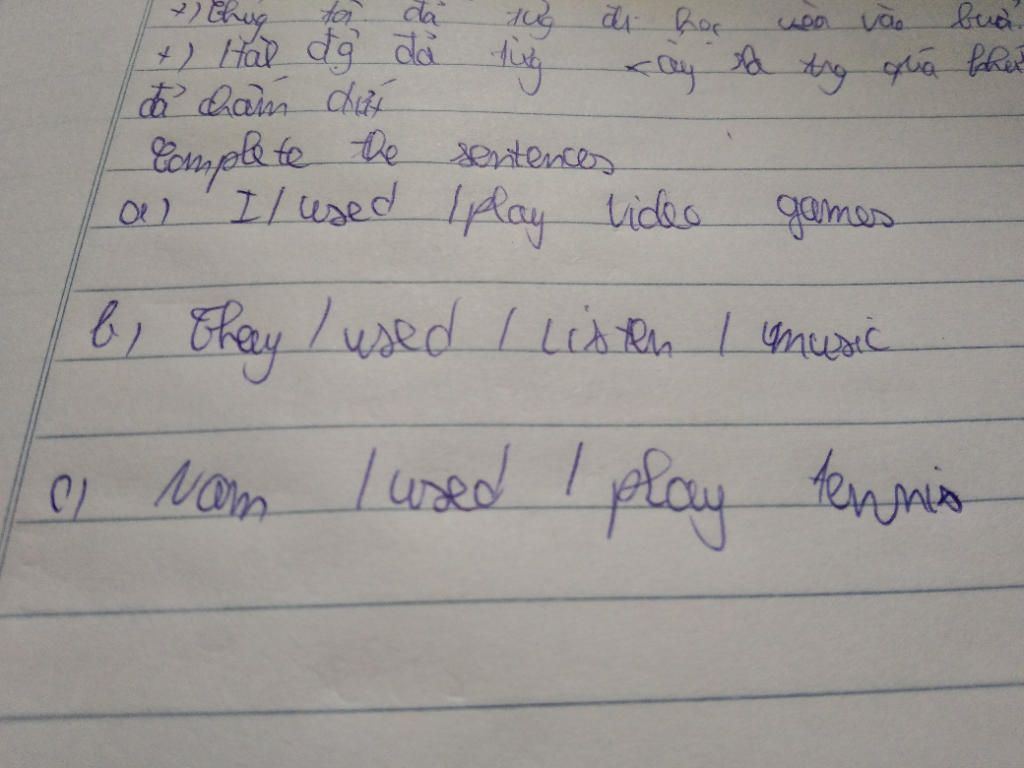 +) Chúg tôi đã từg đi học vào buổi
+) Hàh độg đã từg xảy ra trg quá khứ
đã chấm dứt
Complete the sentences
a) I / used / play video games
b) They / used / listen / music
c) Nam / used / play tennis